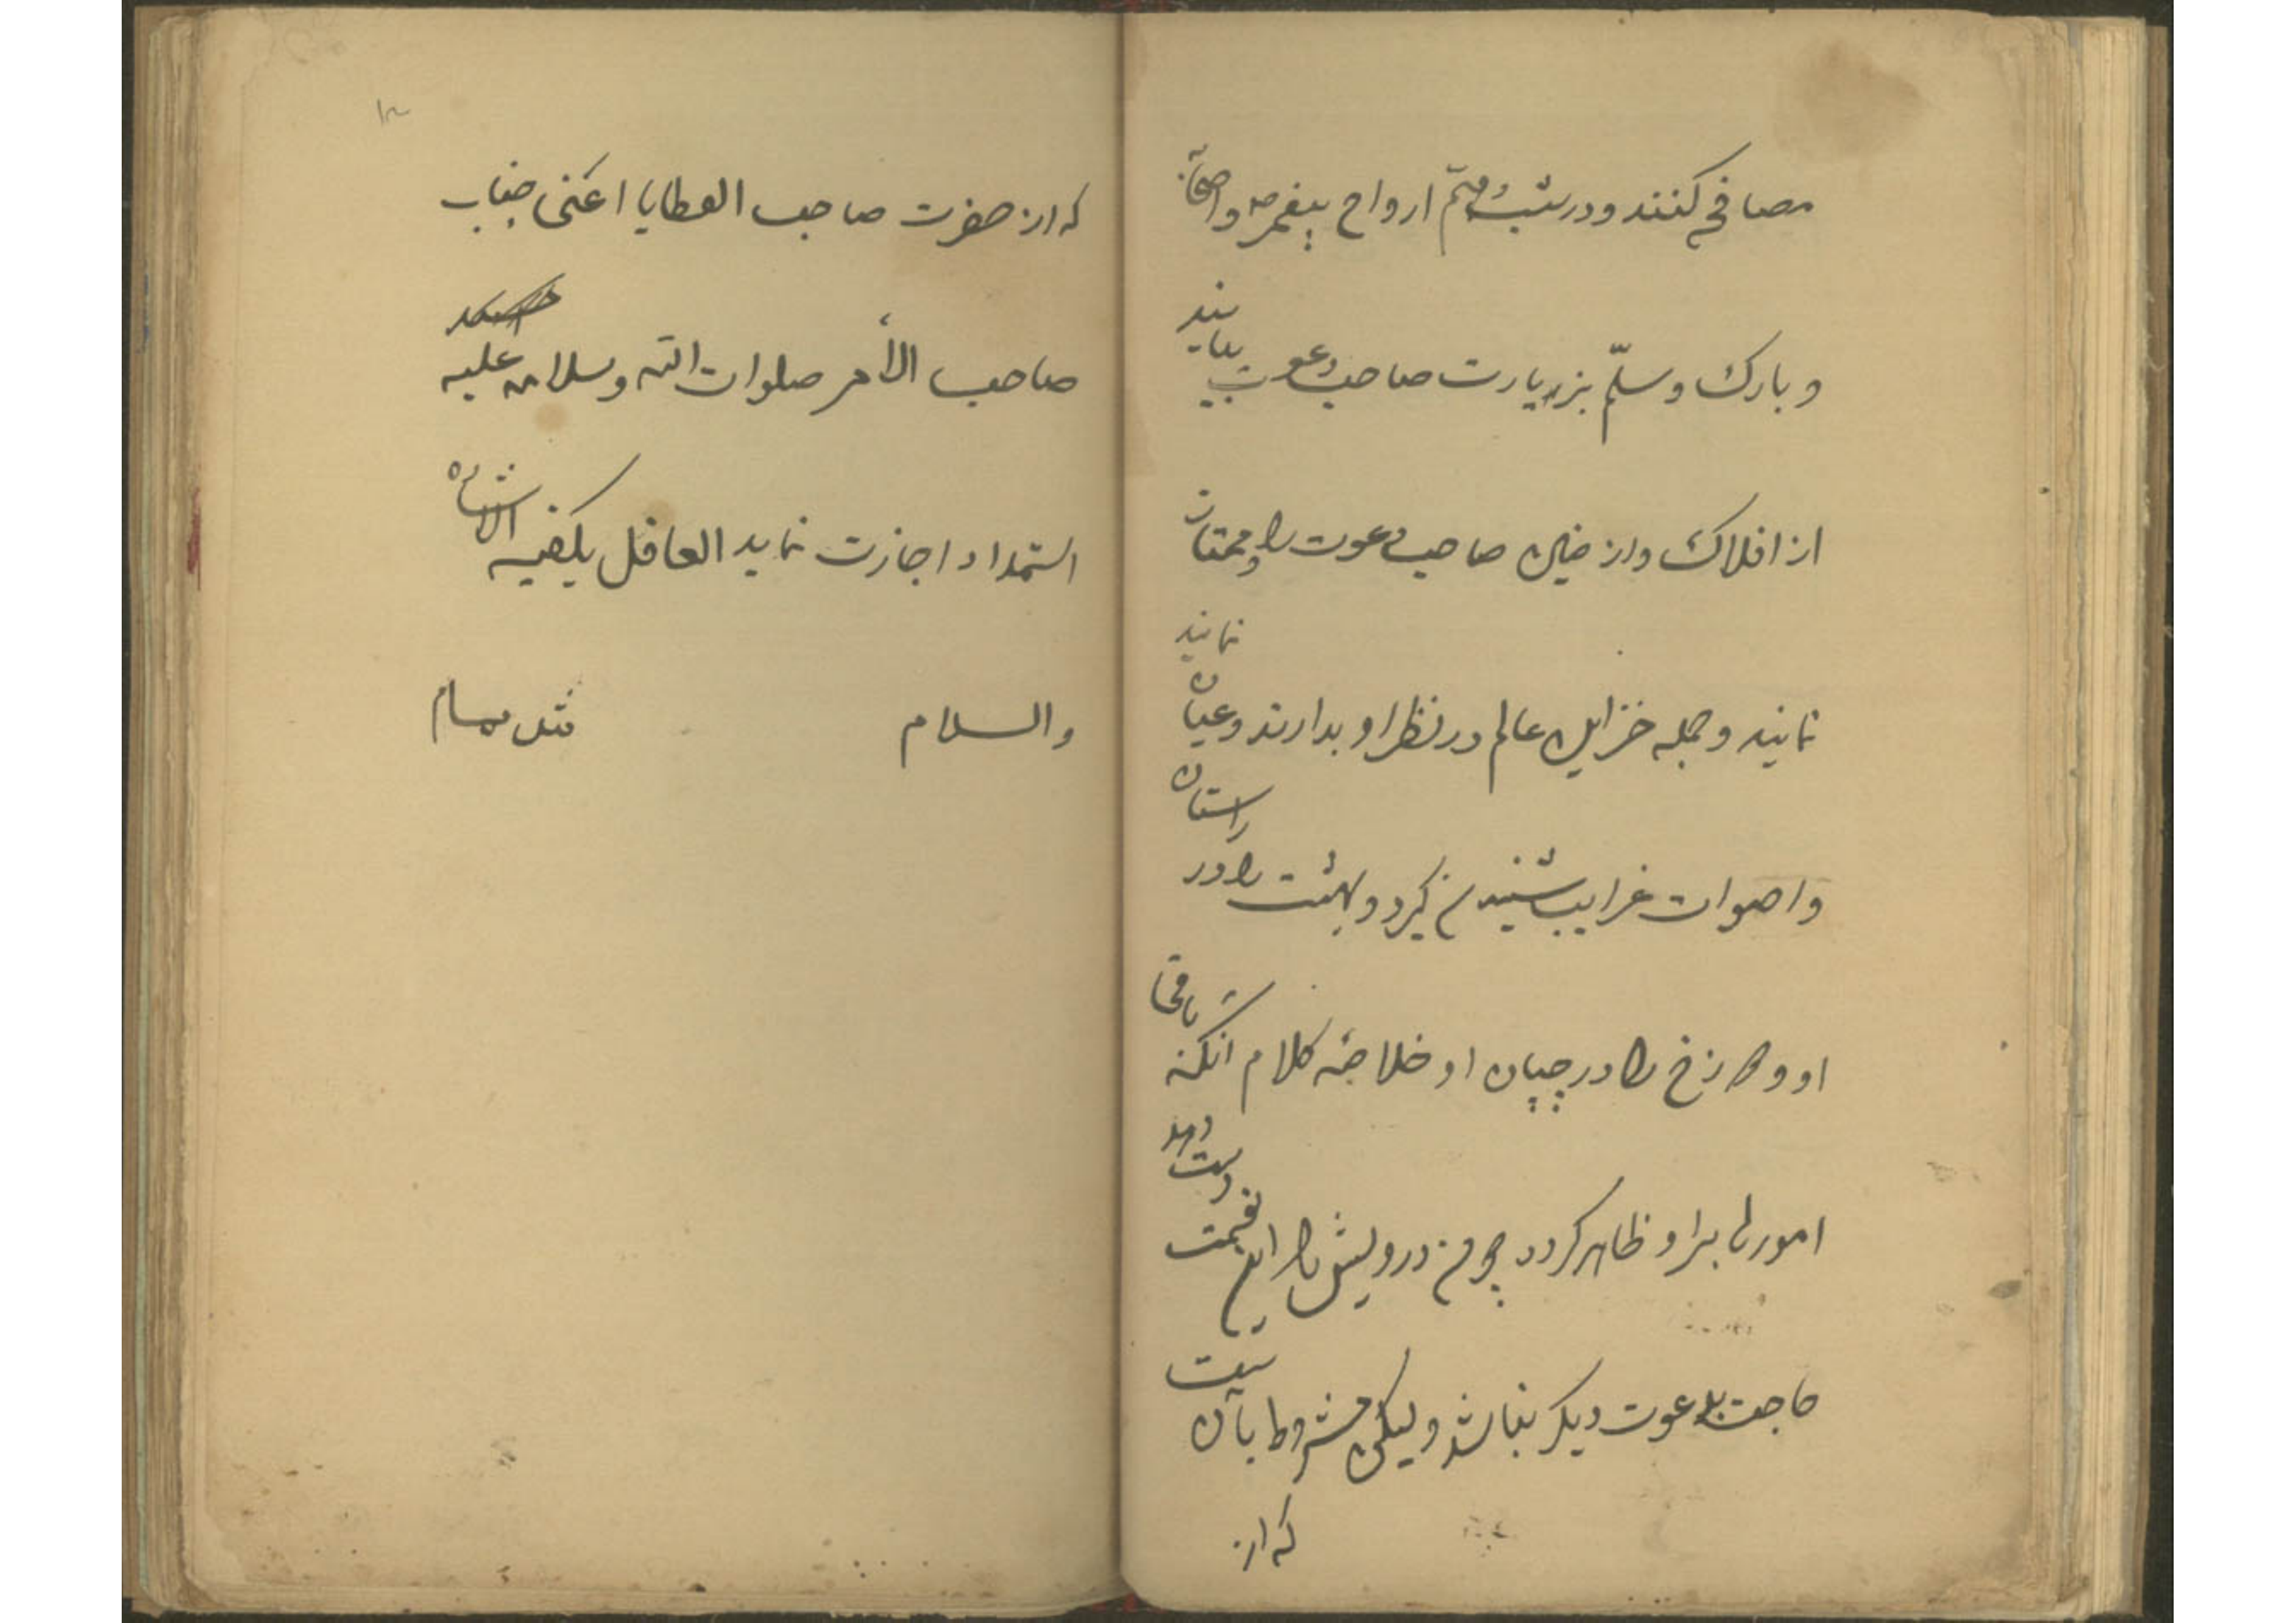 مصافحه کنند و در شب هشتم ارواح پیغمبر ص و اصحابه
و بارک و سلّم بزیارت صاحب دعوت بیایند
از افلاک و ارضین صاحب دعوت را و مختار
نمایند
نمایند و جمله خزاین عالم در نظر او بدارند و عیان
و اصوات غرایب شنیدن گیرد و بهشت را در راستان
او و دوزخ را در چپان او خلاصه کلام آنکه
امور را بر او ظاهر گردد چون درویش را این نعمت دست دهد
حاجت بدعوت دیگر نباشد ولیکن مشروط بآن
که از
که از حضرت صاحب العطایا اعنی جناب
صاحب الأمر صلوات الله و سلامه علیه
استمداد اجازت نماید العاقل یکفیه الاشاره
والسلام